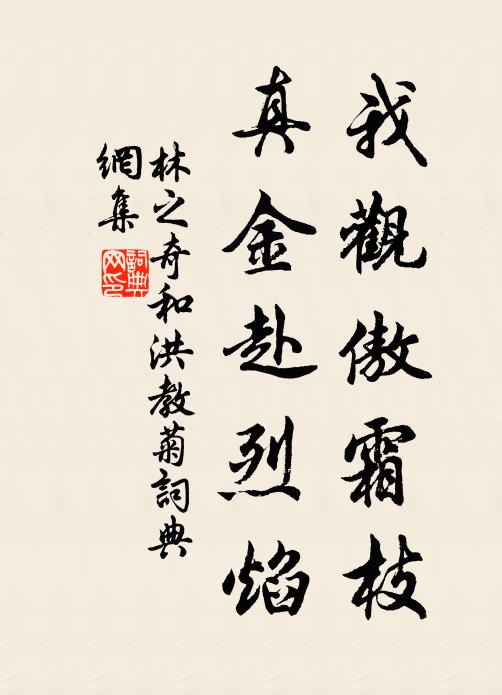 我觀傲霜枝
真金赴烈焰
林之奇和洪教菊詞典
網集
詞典
网印